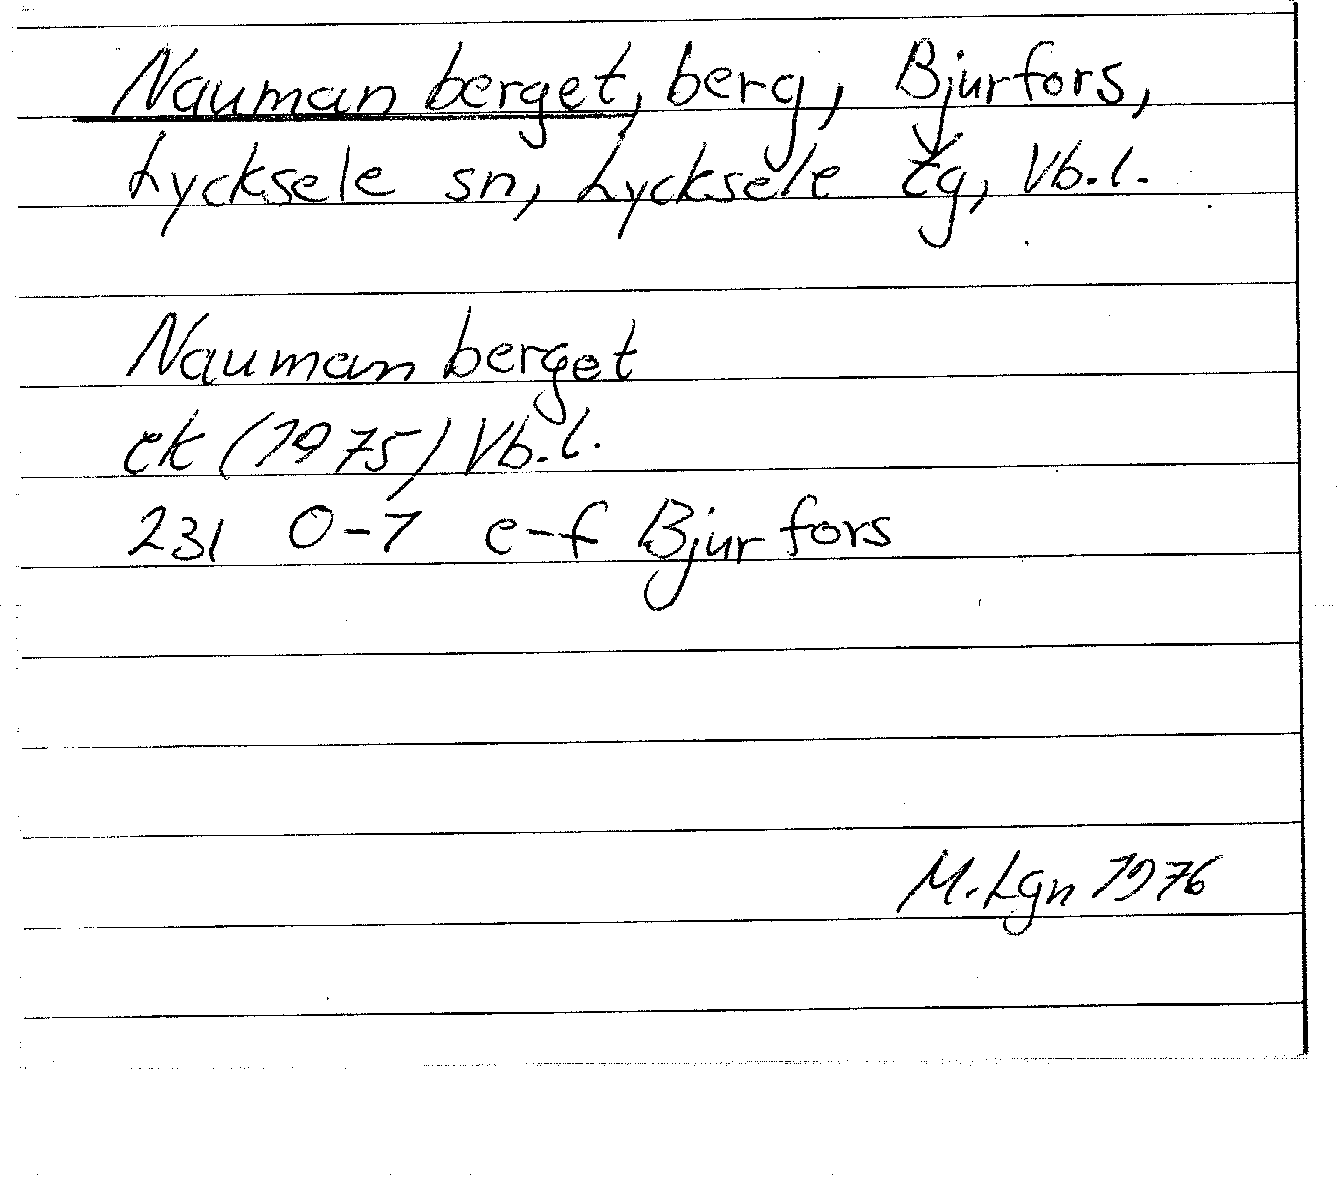 Naumanberget, berg, Bjurfors,
Lycksele sn, Lycksele tg, Vb.l.
Naumanberget
ek (1975) Vb.l.
231 0-7 e-f Bjurfors
M.Lgn 1976